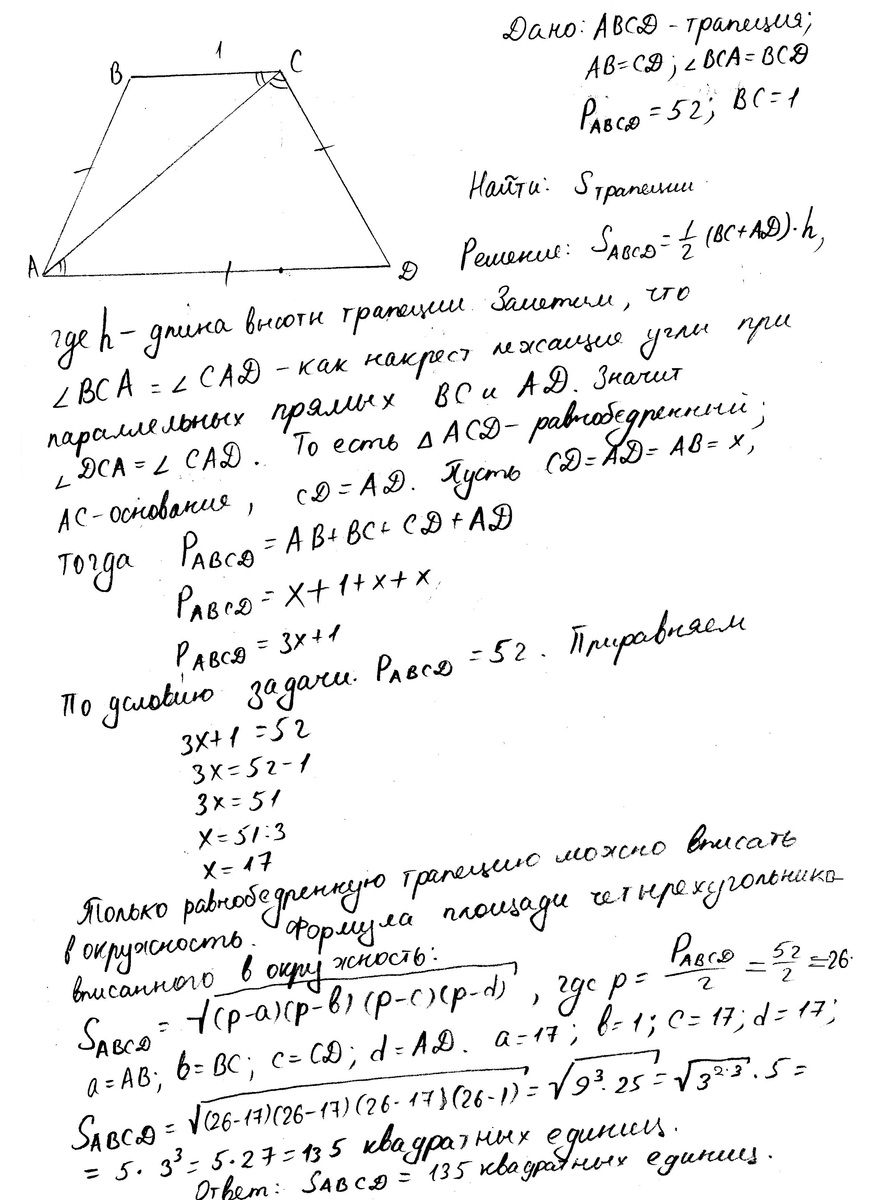 1
B
C
A
D
Дано: ABCD - трапеция;
AB=CD; ∠BCA=BCD
P_ABCD = 52; BC=1
Найти: S трапеции.
Решение: S_ABCD = 1/2 (BC+AD)·h,
где h – длина высоты трапеции. Заметим, что
∠BCA = ∠CAD – как накрест лежащие углы при
параллельных прямых BC и AD. Значит
∠DCA = ∠CAD. То есть △ACD – равнобедренный;
AC – основания, CD = AD. Пусть CD=AD=AB=x,
тогда P_ABCD = AB+BC+CD+AD
P_ABCD = x+1+x+x
P_ABCD = 3x+1
По условию задачи. P_ABCD = 52. Приравняем
3x+1 = 52
3x = 52-1
3x = 51
x = 51:3
x = 17
Только равнобедренную трапецию можно вписать
в окружность. Формула площади четырехугольника
вписанного в окружность:
S_ABCD = √(p-a)(p-b)(p-c)(p-d), где p = P_ABCD/2 = 52/2 = 26.
a=AB; b=BC; c=CD; d=AD. a=17; b=1; c=17; d=17;
S_ABCD = √(26-17)(26-17)(26-17)(26-1) = √9³·25 = √3^2·3 · 5 =
= 5·3³ = 5·27 = 135 квадратных единиц.
Ответ: S_ABCD = 135 квадратных единиц.